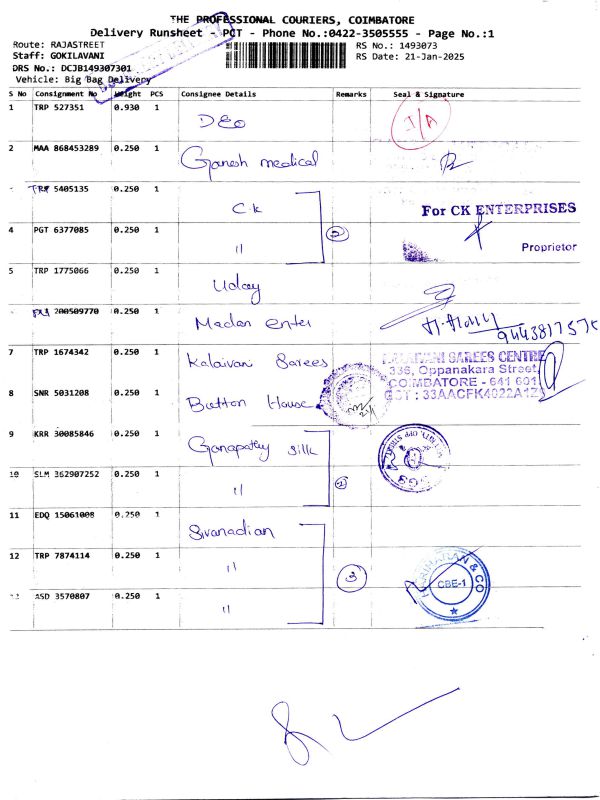 THE PROFESSIONAL COURIERS, COIMBATORE
Delivery Runsheet - PCT - Phone No.:0422-3505555 - Page No.:1
Route: RAJASTREET
Staff: GOKILAVANI
DRS No.: DCJB149307301
Vehicle: Big Bag Delivery
RS No.: 1493073
RS Date: 21-Jan-2025
S No Consignment No Weight PCS Consignee Details Remarks Seal & Signature
1 TRP 527351 0.930 1 DEO I/A
2 MAA 868453289 0.250 1 Ganesh medical
TRP 5405135 0.250 1 C.k For CK ENTERPRISES
4 PGT 6377085 0.250 1 11 2 Proprietor
5 TRP 1775066 0.250 1 Uday
200509770 0.250 1 Madan enter 9443817575
7 TRP 1674342 0.250 1 Kalaivani Sarees KALAIVANI SAREES CENTRE
336, Oppanakara Street,
COIMBATORE - 641 601
GST : 33AACFK4022A1Z
8 SNR 5031208 0.250 1 Button House
9 KRR 30085846 0.250 1 Ganapathy silk
10 SLM 362907252 0.250 1 11 2
11 EDQ 15061008 0.250 1 Sivanadian
12 TRP 7874114 0.250 1 11 3 & CO
CBE-1
13 ASD 3570807 0.250 1 11